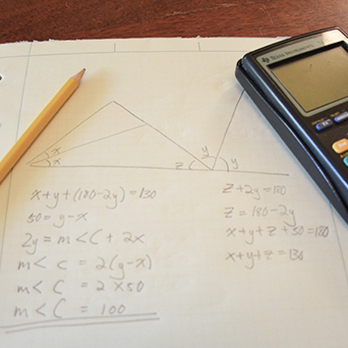 TEXAS INSTRUMENTS
x
x
y
z
y
x+y+(180-2y)=130
50=y-x
2y = m<C + 2x
m< c = 2(y-x)
m< C = 2 x 50
m< C = 100
z+2y=180
z = 180-2y
x+y+z+50=180
x+y+z=130